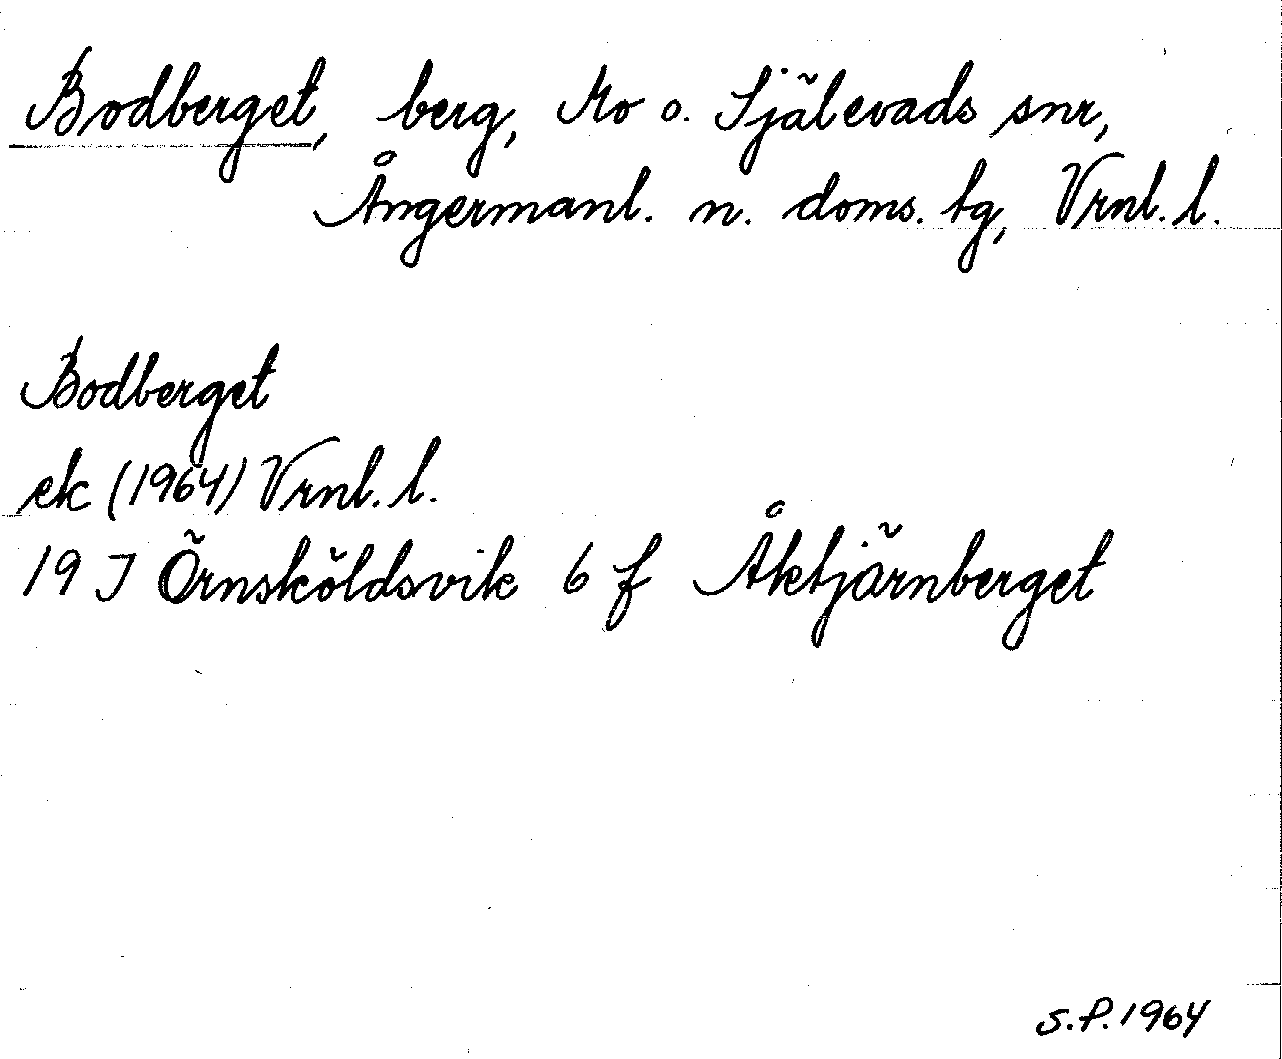 Bodberget, berg, Mo o. Själevads snr,
Ångermanl. n. doms. tg, Vrnl. l.
Bodberget
ek (1964) Vrnl. l.
19 J Örnsköldsvik 6 f Åktjärnberget
S.P. 1964